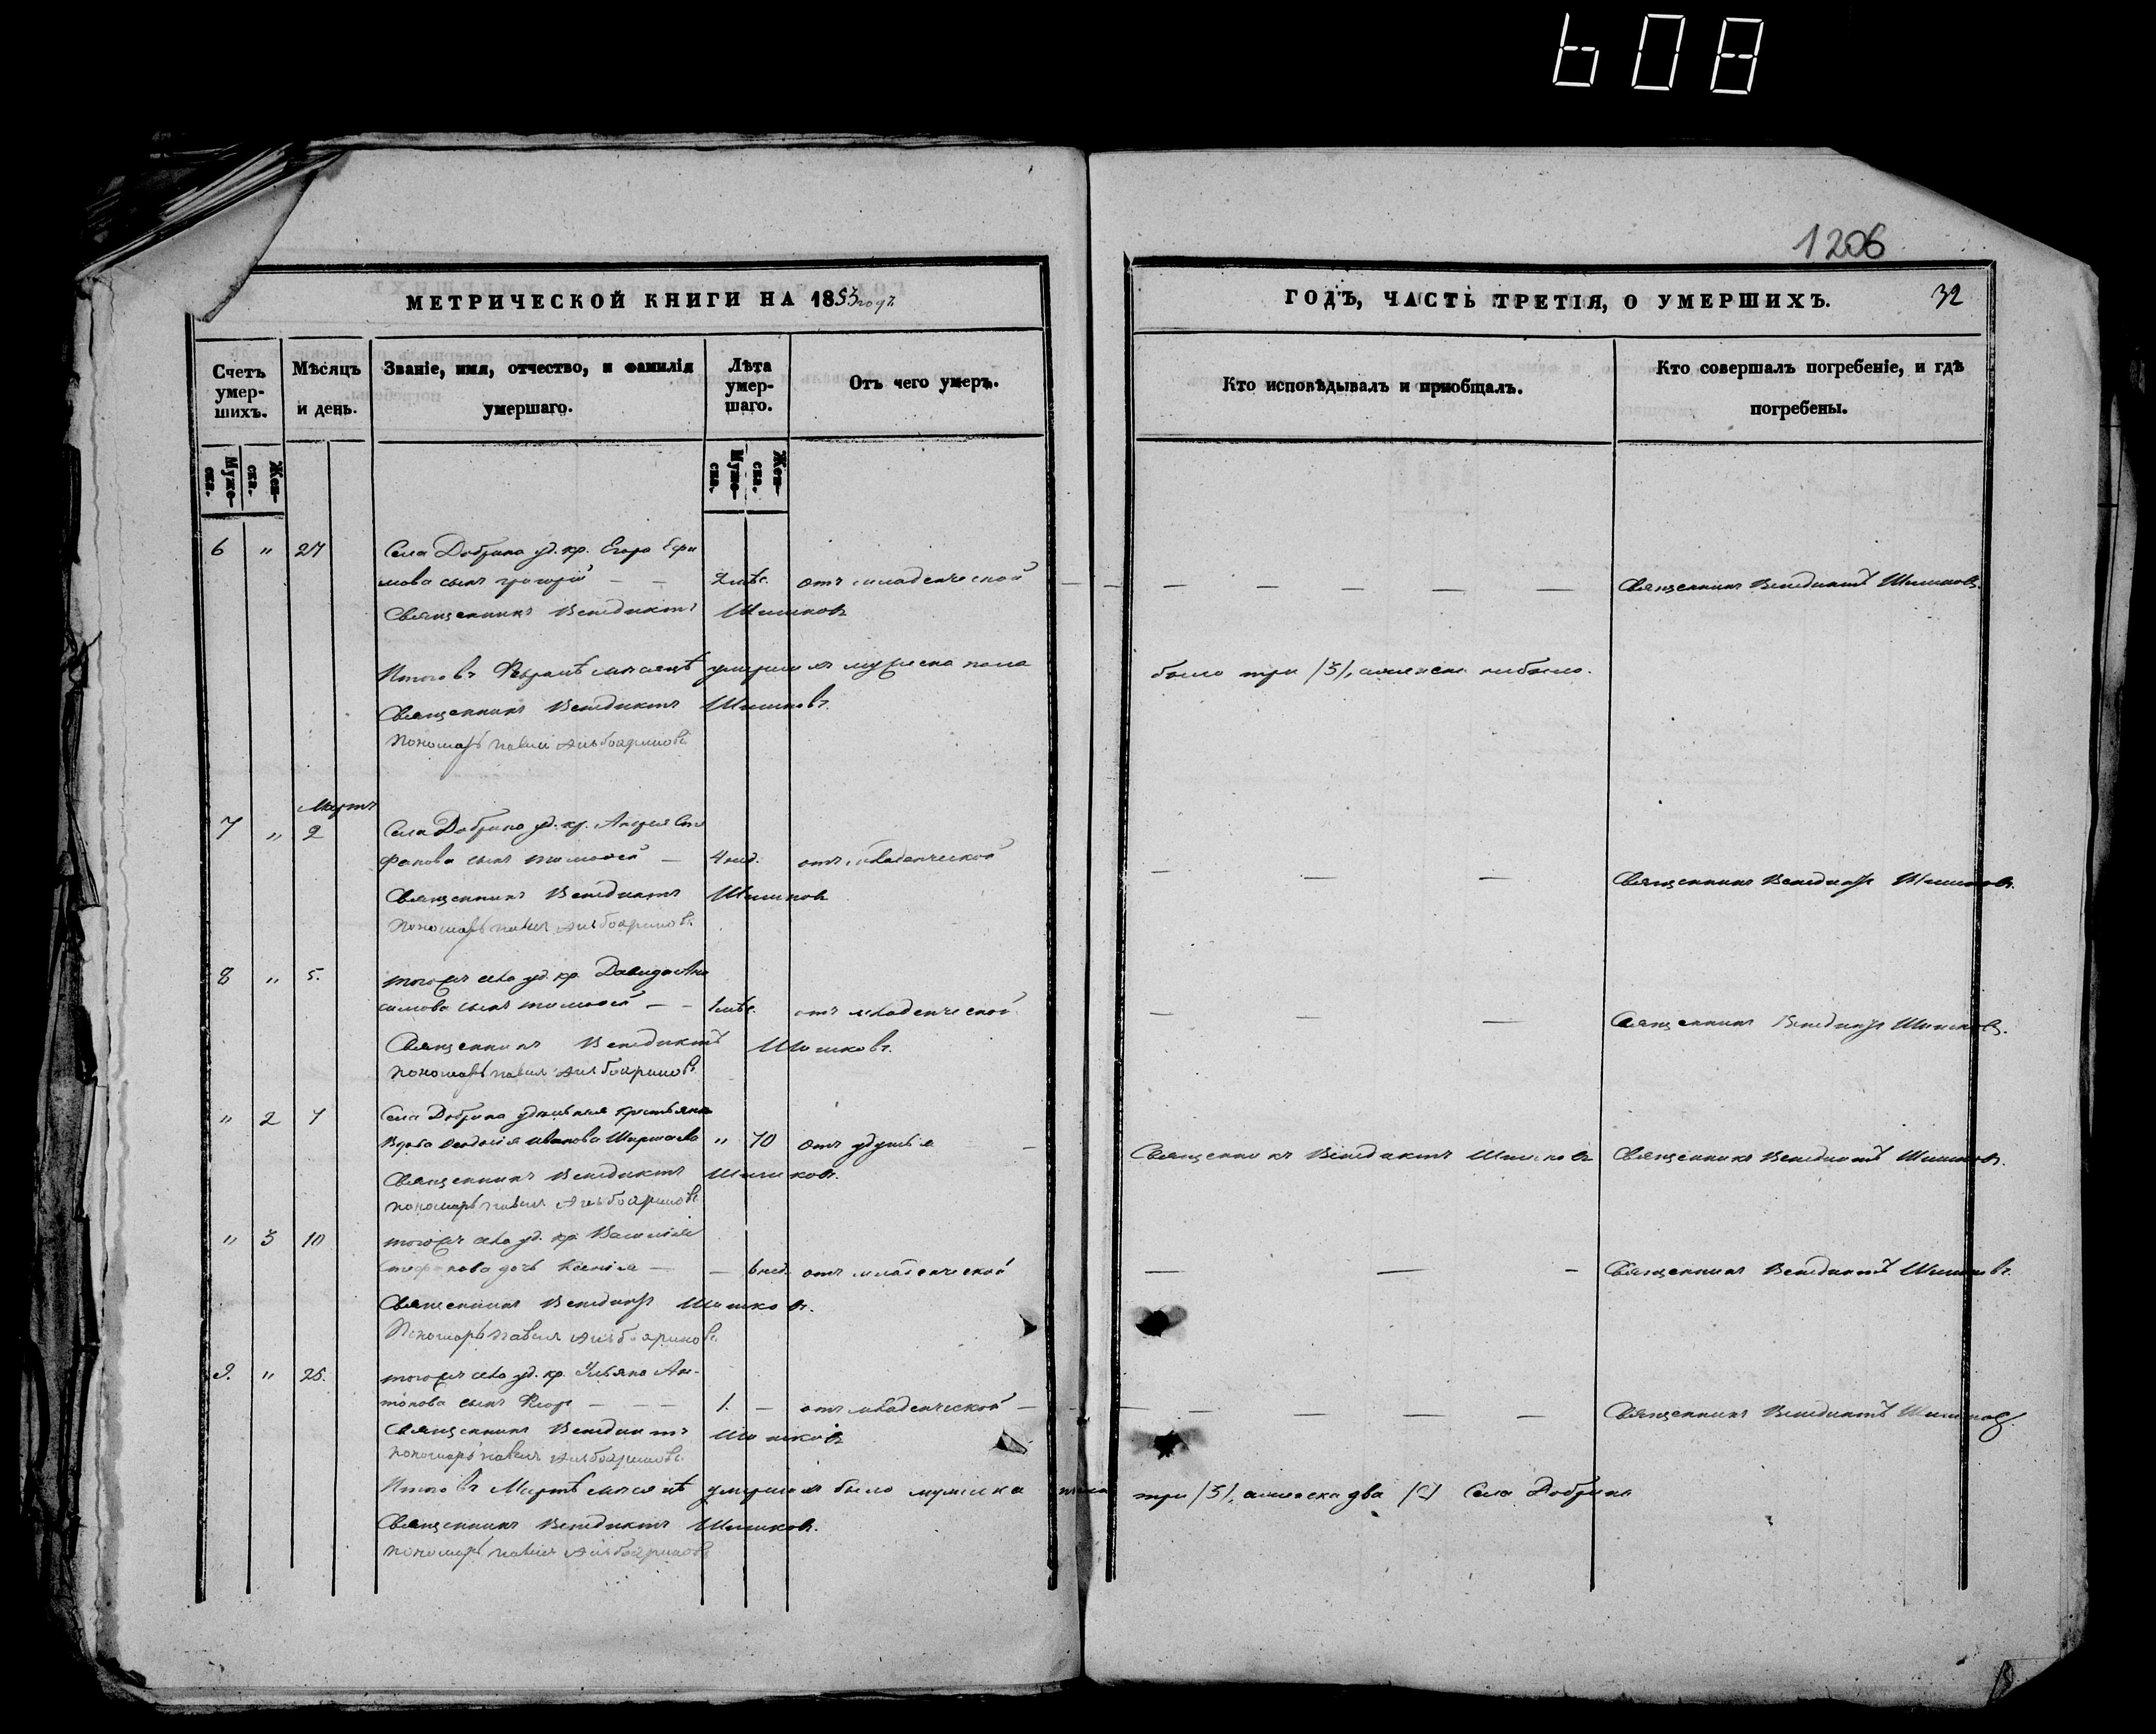 608
1206
МЕТРИЧЕСКОЙ КНИГИ НА 1853 годъ
ГОДЪ, ЧАСТЬ ТРЕТІЯ, О УМЕРШИХЪ.
32
Счетъ умер-шихъ.
Мѣсяцъ и день.
Званіе, имя, отчество, и фамилія умершаго.
Лѣта умер-шаго.
Отъ чего умеръ.
Кто исповѣдывалъ и пріобщалъ.
Кто совершалъ погребеніе, и гдѣ погребены.
Муже-ска.
Жен-ска.
Муже-ска.
Жен-ска.
6 " 27 Села Добрина уд. кр. Егора Ефи
мова сынъ григорій — — 2 мѣс. отъ младенческой — — — — — — Священникъ Венедиктъ Шишковъ.
Священникъ Венедиктъ Шишковъ
Итого въ мѣсяцѣ умершихъ мужеска пола было три /3/, а женска небыло.
Священникъ Венедиктъ Шишковъ.
пономарь павил
Мартъ
7 " 2 Села Добрина уд. кр. Андрея Сте
фанова сынъ тимофей — 4 нед. отъ младенческой — — — Священникъ Венедиктъ Шишковъ.
Священникъ Венедиктъ Шишковъ
Пономарь павил
8 " 5. тогожъ села уд. кр. Давида Ани
симова сынъ тимофей — — 1 мѣс. отъ младенческой — — — Священникъ Венедиктъ Шишковъ.
Священникъ Венедиктъ Шишковъ.
пономарь павил
" 2 7 Села Добрина удельная крестьянка
Вдова Феодосія иванова " 70 отъ удушья — Священникъ Венедиктъ Шишковъ Священникъ Венедиктъ Шишковъ.
Священникъ Венедиктъ Шишковъ.
пономарь павил
" 3 10 тогожъ села уд. кр. Василія
Стефанова дочь Ксенія — — 6 нед. отъ младенческой — — — Священникъ Венедиктъ Шишковъ.
Священникъ Венедиктъ Шишковъ.
Пономарь павил
9. " 25. тогожъ села уд. кр. Ульяна Ан-
тонова сынъ — — — 1. — отъ младенческой — — — — — — Священникъ Венедиктъ Шишковъ.
Священникъ Венедиктъ Шишковъ
пономарь павил
Итого въ Мартѣ мѣсяцѣ умершихъ было мужеска пола три /3/, а женска два /2/ Села Добрина
Священникъ Венедиктъ Шишковъ.
пономарь павил